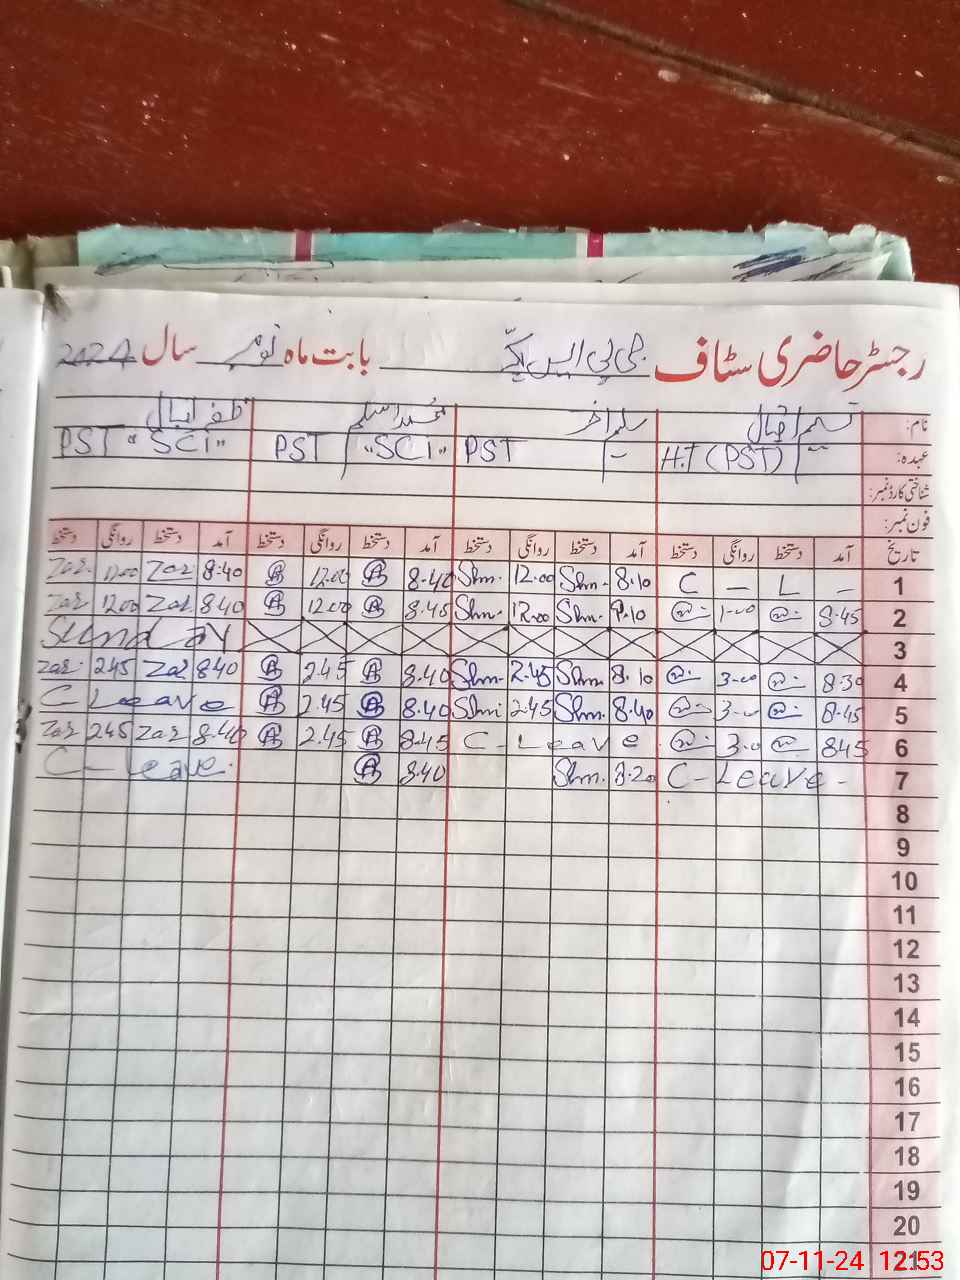 رجسٹر حاضری سٹاف جی پی ایس بابت ماہ نومبر سال 2024
نام: اقبال سلیم اختر محمد اسلم ظفر اقبال
عہدہ: H.T (PST) PST PST "SCI" PST "SCI"
شناختی کارڈ نمبر:
فون نمبر:
تاریخ آمد دستخط روانگی دستخط آمد دستخط روانگی دستخط آمد دستخط روانگی دستخط آمد دستخط روانگی دستخط
1 — L — C 8.10 Shm. 12.00 Shm. 8.40 12.00 8.40 Zar 12.00 Zar.
2 8.45 1-00 8.10 Shm. 12.00 Shm. 8.45 12.00 8.40 Zar. 12.00 Zar
3 Sunday
4 8.30 3-00 8.10 Shm. 2.45 Shm. 8.40 2.45 8.40 Zar 2.45 Zar.
5 8.45 3-00 8.40 Shm. 2.45 Shm. 8.40 2.45 C Leave
6 8.45 3.0 C-Leave 8.45 2.45 8.40 Zar 2.45 Zar
7 C-Leave- 8.20 Shm. 8.40 C-Leave.
8
9
10
11
12
13
14
15
16
17
18
19
20
21
07-11-24 12:53